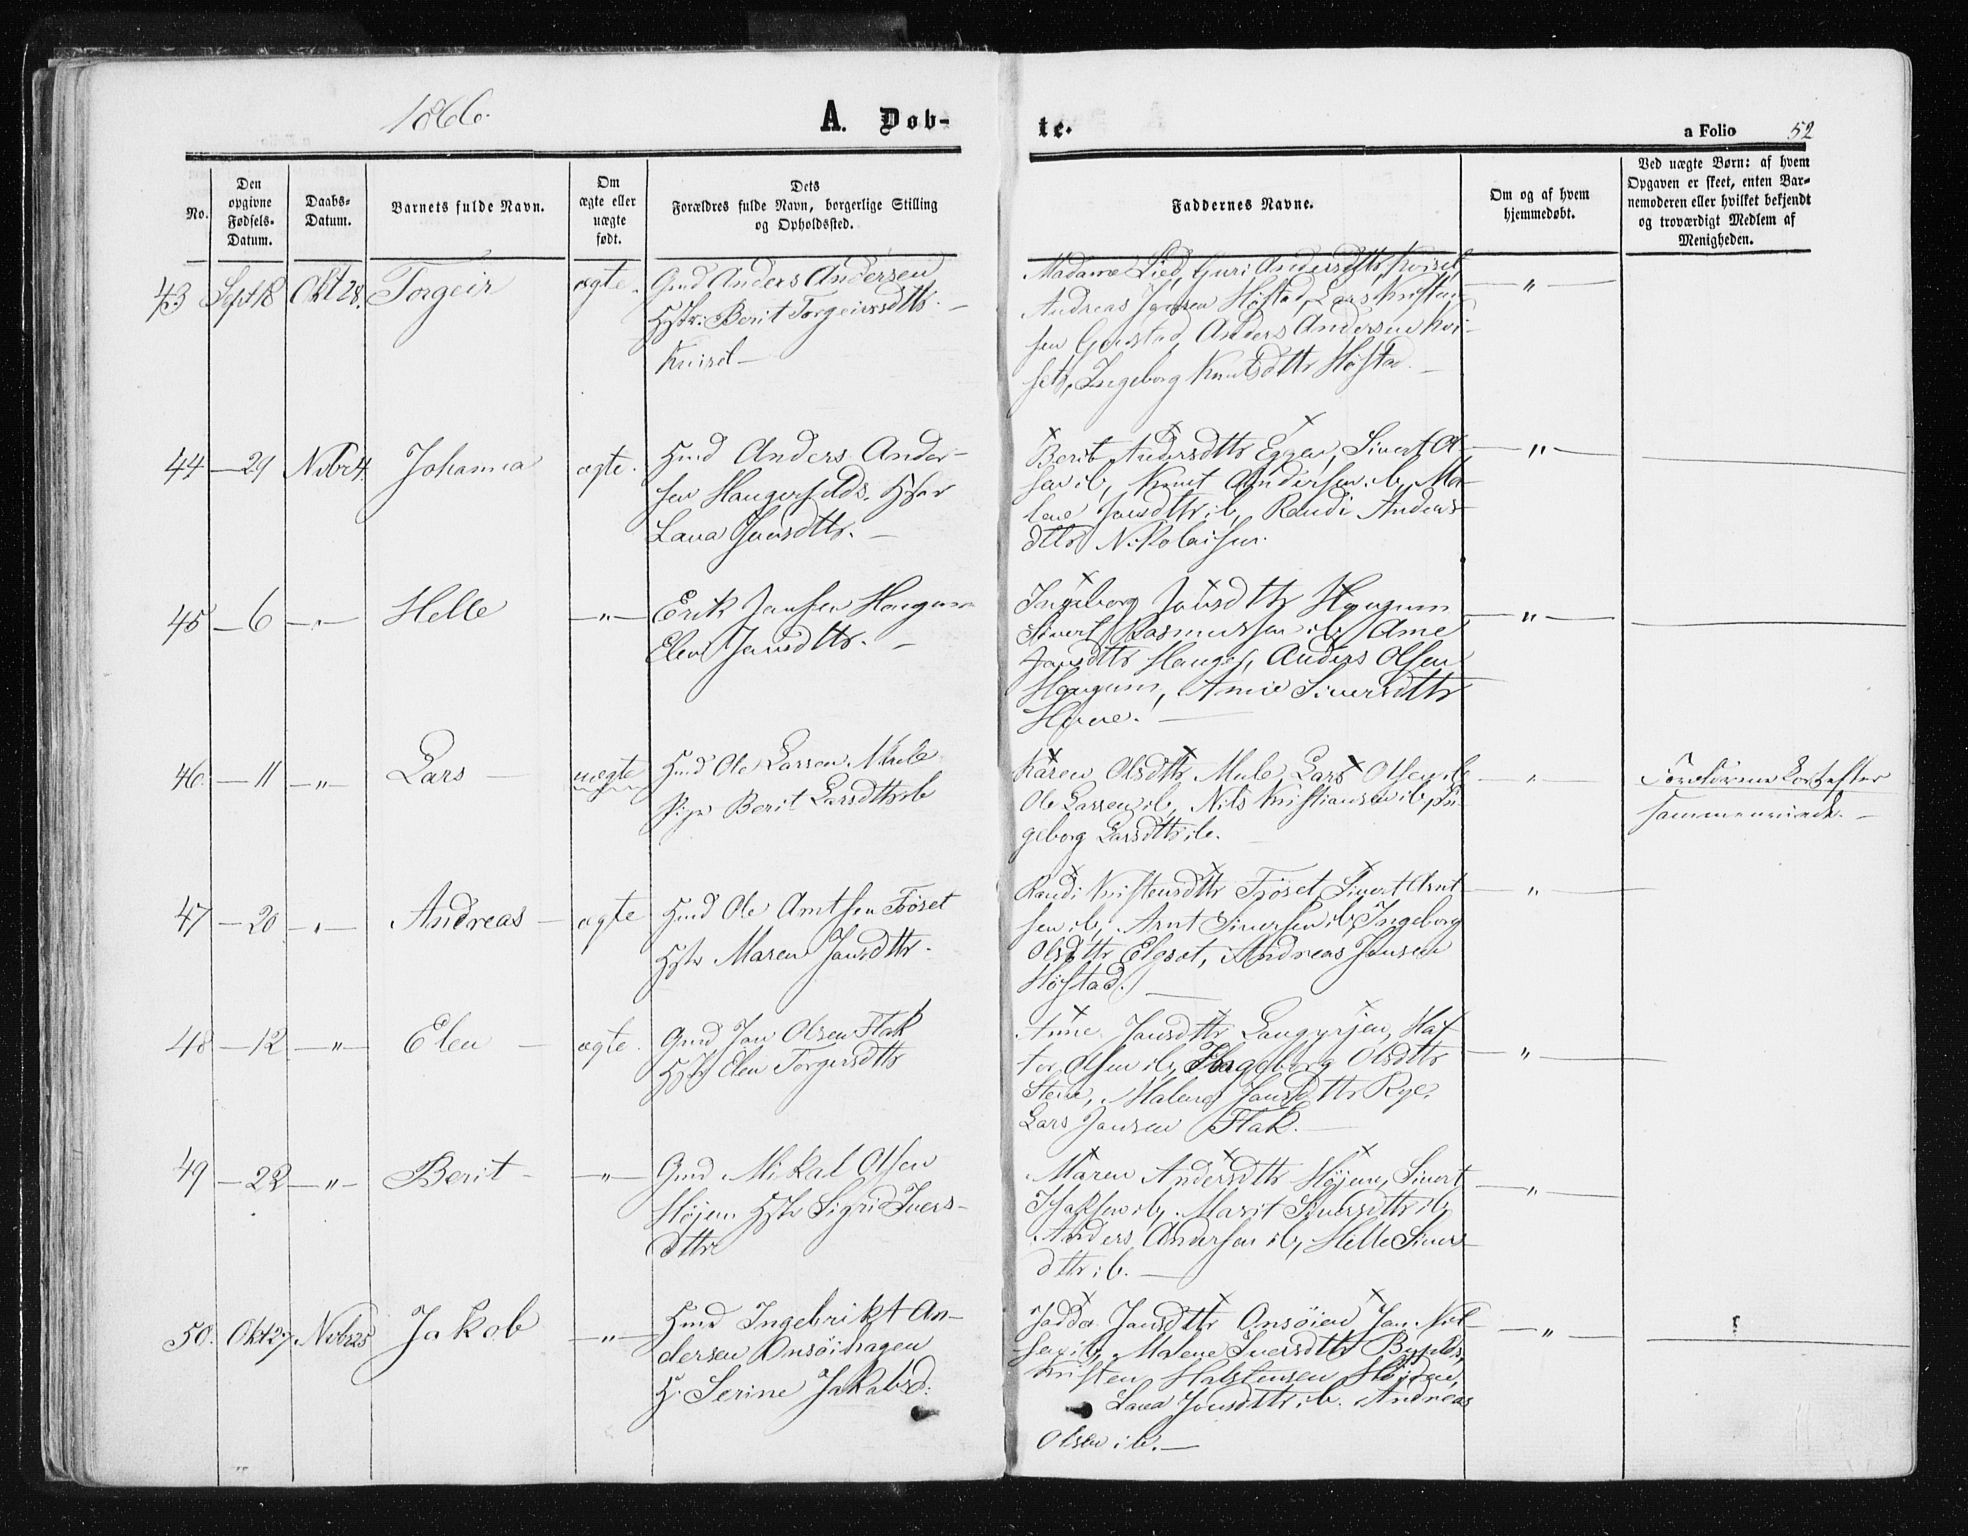 1866.
A. Døb-
te.
a Folio 52
No.
Den opgivne Fødsels-Datum.
Daabs-Datum.
Varnets fulde Navn.
Om ægte eller uægte født.
Dets Forældres fulde Navn, borgerlige Stilling og Opholdssted.
Faddernes Navne.
Om og af hvem hjemmedøbt.
Ved uægte Børn: af hvem Opgaven er skeet, enten Barnemoderen eller hvilket bekjendt og troværdigt Medlem af Menigheden.
43 Sept 18 Okt 28. Torgeir ægte.
Gmd Anders Andersen
Hstr: Berit Torgeirsdtr.
Kvisel —
Madame Lied, Guri Andersdttr Kvisel,
Andreas Jansen Høstad, Lars Kristen-
sen Anders Andersen Kvi-
sels, Ingeborg Knutsdttr Høstad. —
"
44 — 29 Nvbr 4. Johanna ægte.
Hmd Anders Ander-
sen
Lava Jonsdttr. —
Berit Andersdttr Eggen, Sivert Ol-
sen ib, Knut Andersen ib, Ma-
lene Jonsdttr ib, Randi Anders
dttr Nikolaisen.
"
45 — 6 — " — Helle — " —
Erik Jansen Haugum
Elen Jansdttr. —
Ingeborg Jonsdttr Haugum
Sivert Rasmussen ib, Anne
Jonsdttr Hauges, Anders Olsen
Haugum, Anne Sivertsdttr
"
46. — 11 — " — Lars — uægte
Hmd Ole Larsen Mule
Pige Berit Larsdttr ib
Karen Olsdttr Mule, Lars Olsen ib
Ole Larsen ib, Nils Kristiansen ib, In-
geborg Larsdttr ib.
"
Forældrene kort efter
sammenviede. —
47 — 20 — " — Andreas — ægte
Hmd Ole Arntsen Tröset
Hstr Maren Jansdttr.
Randi Kristensdttr Tröset, Sivert Arnt
sen ib, Arnt Sivertsen ib, Ingeborg
Olsdttr Elgset, Andreas Jansen
Høstad. —
"
48 — 12 — " — Elen — ægte.
Gmd Jan Olsen Flak
Hstr Elen Torgersdttr
Anne Jansdttr Langørjen, Haf-
tor Olsen ib, Ingeborg Olsdttr
Stene, Malene Jansdttr Rye,
Lars Jansen Flak. —
"
49 — 22 — " — Berit — " —
Gmd Mikal Olsen
Højem Hstr Sigrid Ivers-
dttr
Maren Andersdttr Højem, Sivert
Isaksen ib, Marit Sivertsdttr ib,
Anders Andersen ib, Helle Sivers
dttr ib. —
"
50. Okt 27 Nvbr 25 Jakob — " —
Hmd Ingebrikt An-
dersen Onsöihagen
H. Serine Jakobsd:
Jonsdttr Onsöien, Jan Nil-
sen ib, Malene Iversdttr
Kristen Halstensen
Lava Jonsdttr ib. Andreas
Olsen ib. —
"